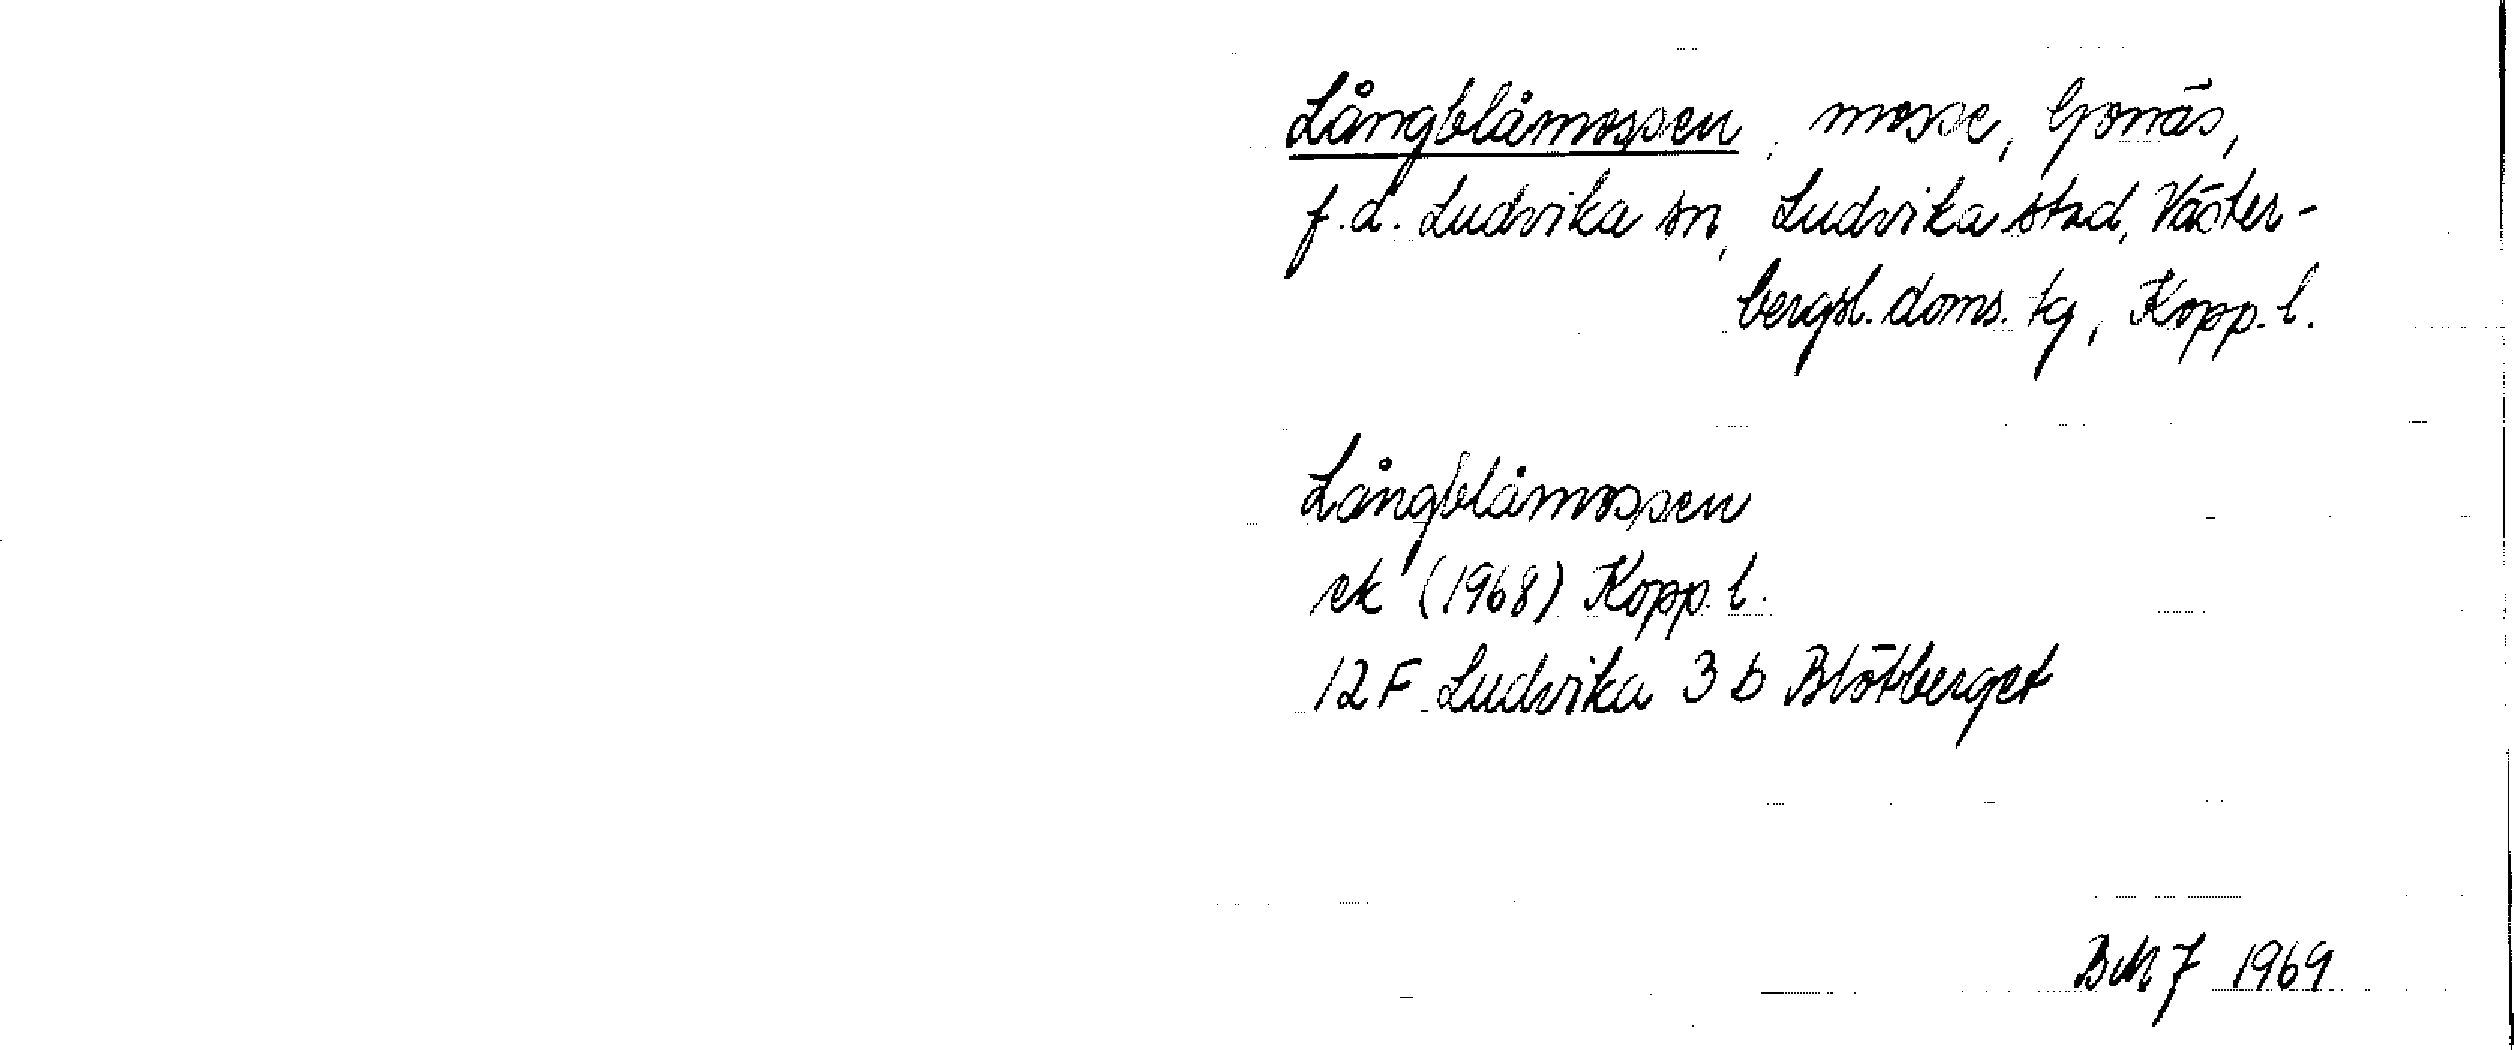 Långblåmossen, mosse, Gonäs,
f.d. Ludvika sn, Ludvika stad, Väster-
bergsl. doms. tg, Kopp. l.
Långblåmossen
ek (1968) Kopp. l.
12 F Ludvika 3 b Blötberget
1969